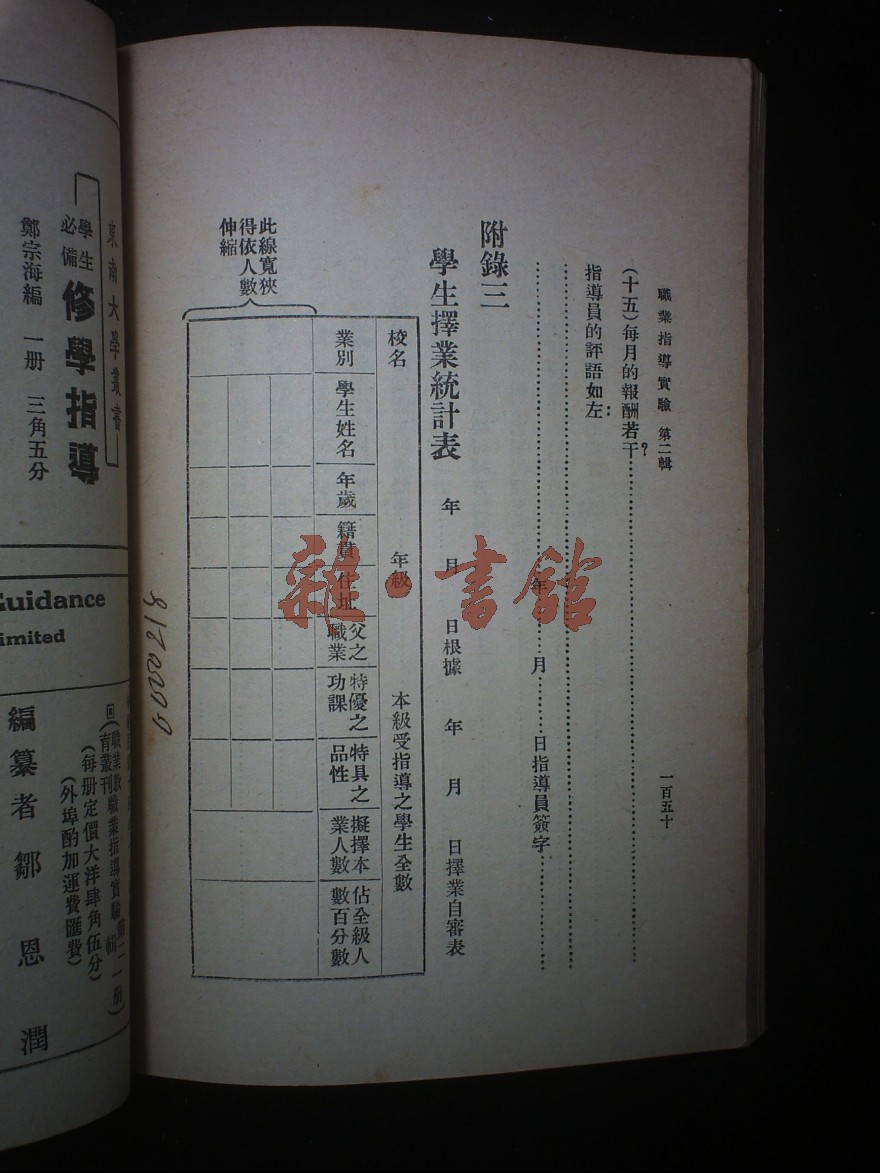 職業指導實驗　第二輯
一百五十
(十五)每月的報酬若干?
指導員的評語如左:
年　月　日指導員簽字
附錄三
學生擇業統計表　年　月　日根據　年　月　日擇業自審表
校名　年級　本級受指導之學生全數
業別
學生姓名
年歲
籍貫
住址
父之職業
特優之功課
特具之品性
擬擇本業人數
佔全級人數百分數
此線寬狹
得依人數
伸縮
雜·書館
東南大學叢書
學生必備　修學指導
鄭宗海編　一册　三角五分
Guidance
imited
(每册定價大洋肆角伍分)
(外埠酌加運費匯費)
編纂者鄒恩潤